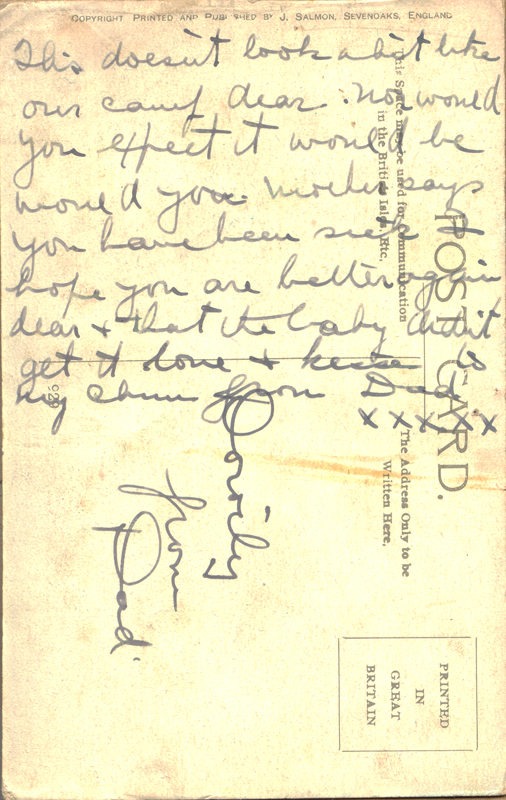 COPYRIGHT PRINTED AND PUBLISHED BY J. SALMON, SEVENOAKS, ENGLAND
This doesn't look a bit like
our camp dear. Nor would
you expect it would be
would you. Mother says
you have been sick I
hope you are better again
dear & that the baby didn't
get it love & kisses to
my chum from Dad
x x x x x
from
Dad.
POST CARD.
This Space may be used for Communication
in the British Isles, Etc.
The Address Only to be
Written Here.
PRINTED
IN
GREAT
BRITAIN